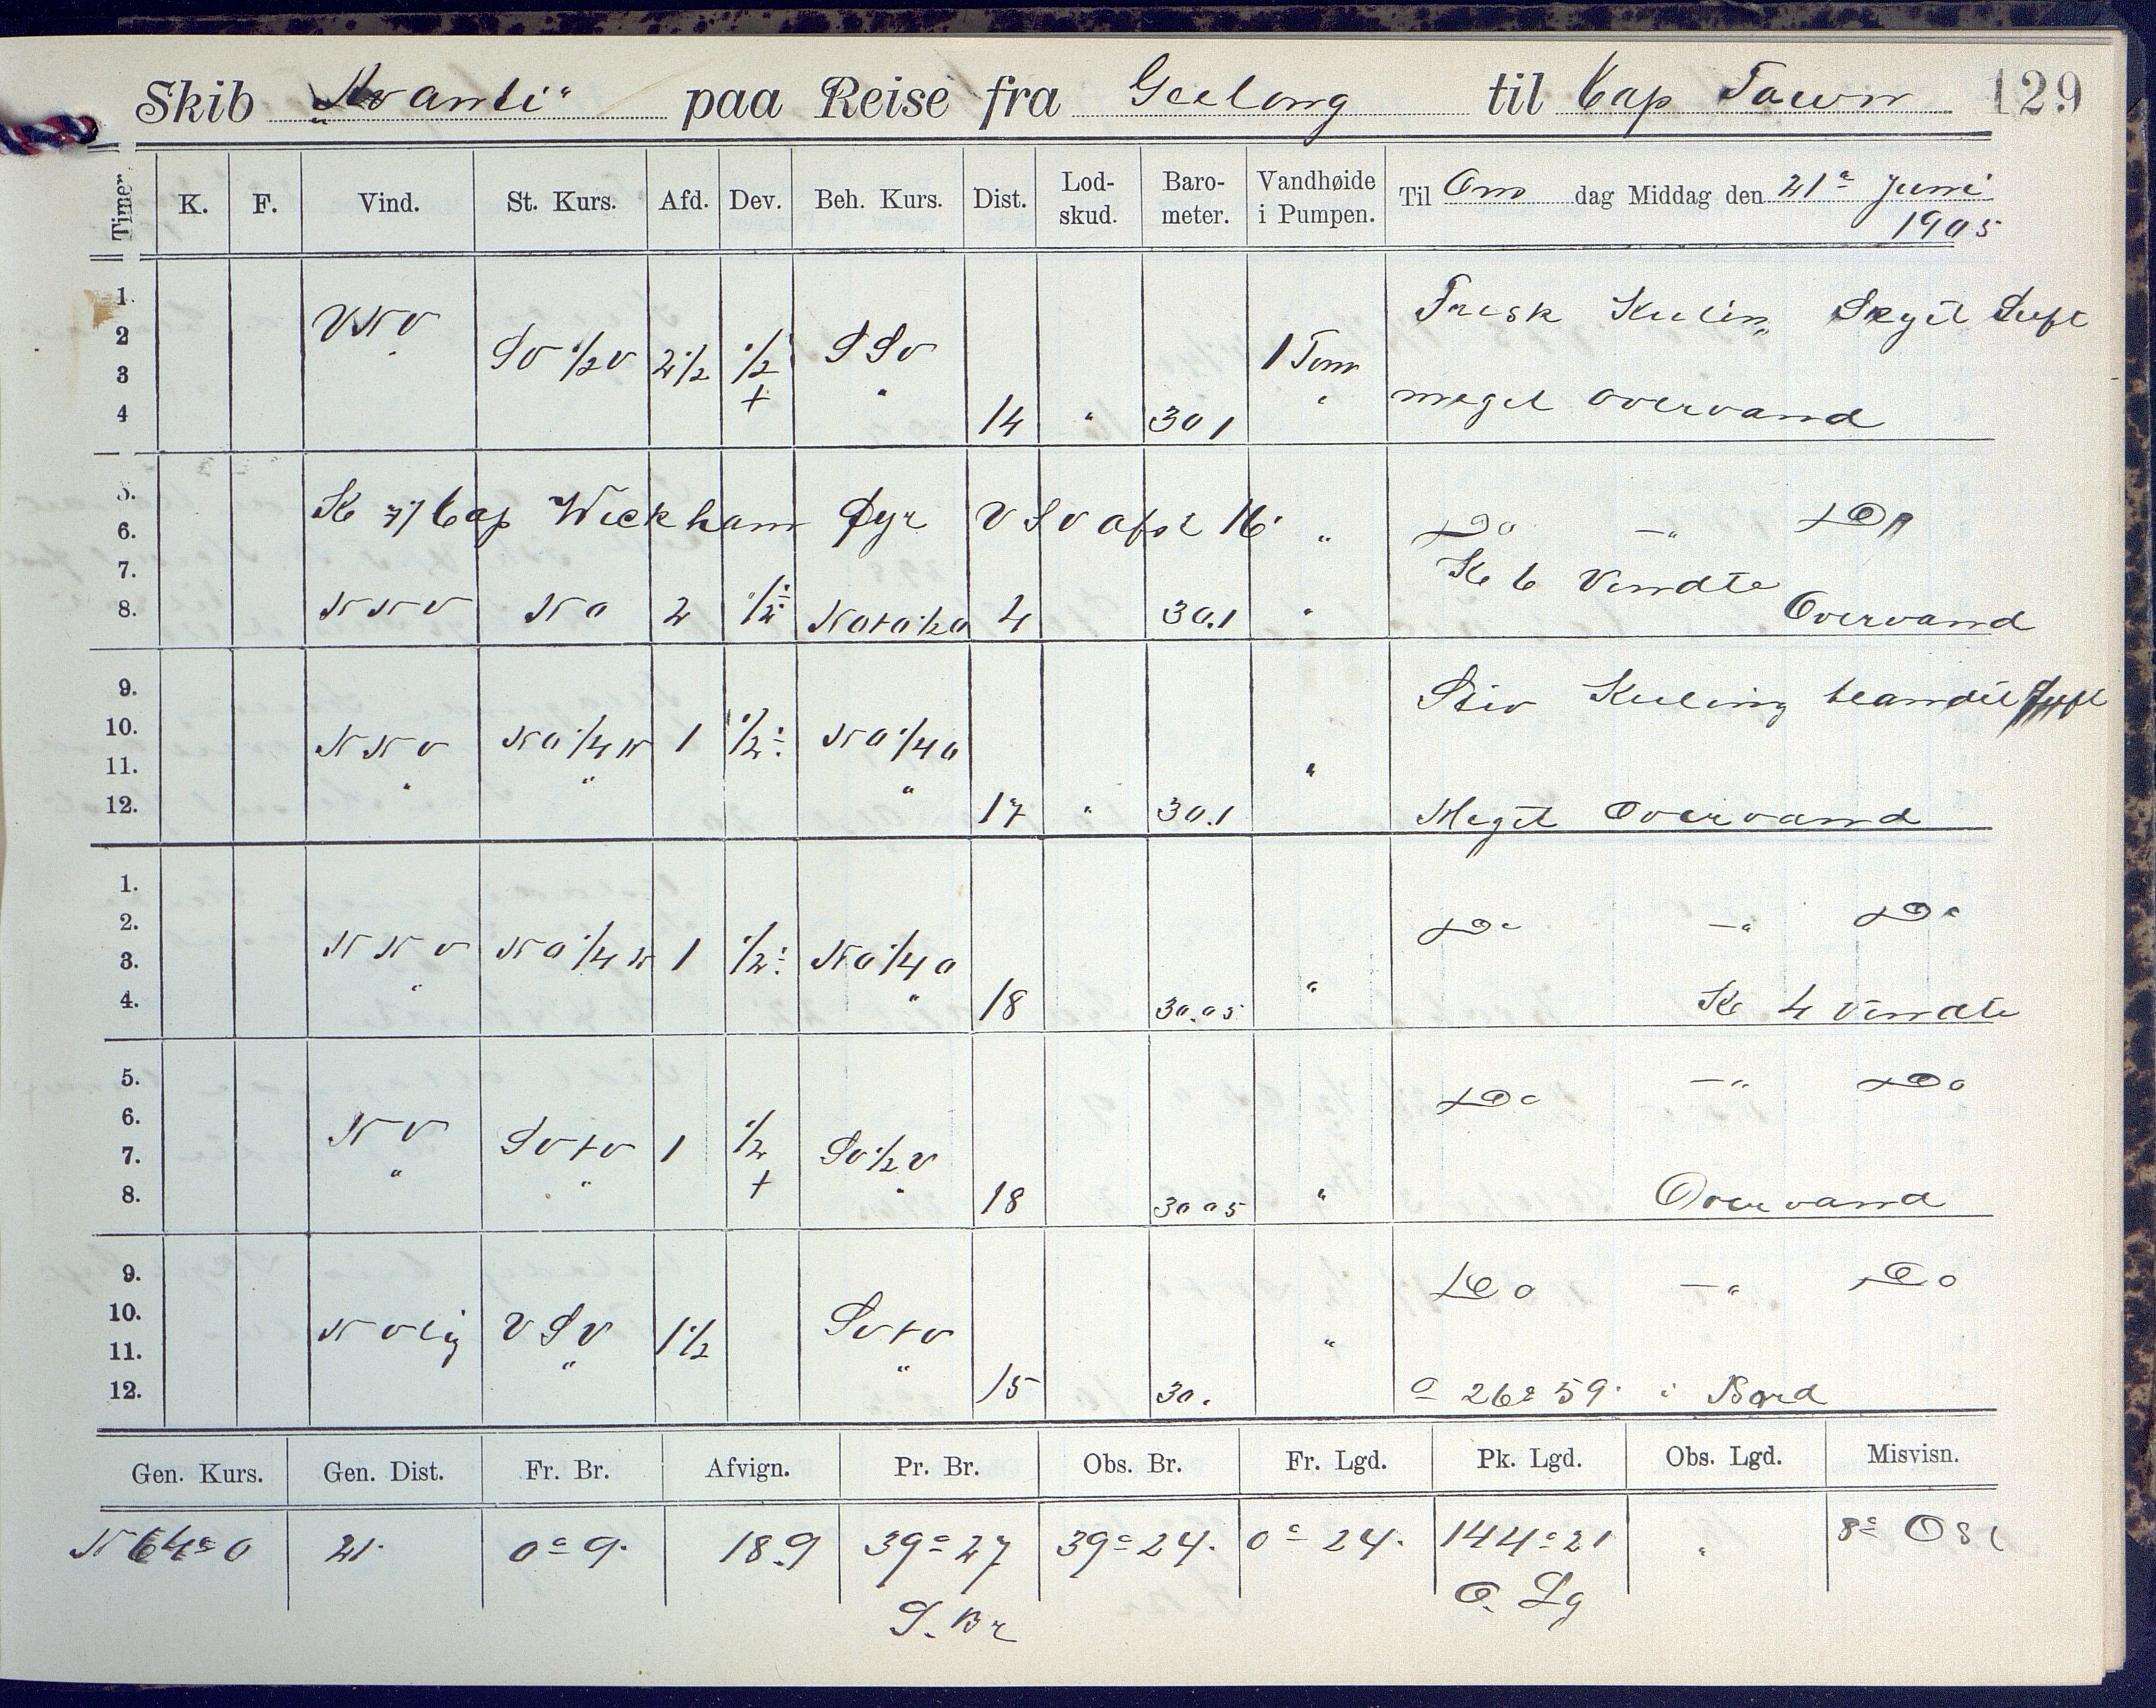 Skib „Avanti“ paa Reise fra Geelong til Cap Town 129
Timer. K. F. Vind. St. Kurs. Afd. Dev. Beh. Kurs. Dist. Lod-skud. Baro-meter. Vandhøide i Pumpen. Til Ons dag Middag den 21de Juni
1905
1. Frisk Kuling Skyet Luft
2 VNV SV 1/2 V 2 1/2 1/2 SSV 1 Tom
3 + "
4 14 " 30 1 " meget overvand
5.
6. Kl 7 Cap Wickham Fyr VSV afst 16' " Do —"— Do
7. Kl 6 Vendte
8. NNV NO 2 1/2 ÷ NOtO 1/2 O 4 30.1 " Overvand
9. Stiv Kuling blandet Luft
10. NNV NO 1/4 N 1 1/2 ÷ NO 1/4 O
11. " " " "
12. 17 " 30.1 Meget Overvand
1.
2. Do —"— Do
3. NNV NO 1/4 N 1 1/2 ÷ NO 1/4 O "
4. " " 18 30.05 Kl 4 Vendte
5. Do —"— Do
6. NV
7. " SVtV 1 1/2 SV 1/2 V
8. " + " 18 30 05 " Overvand
9. Do —"— Do
10. NVlig VSV 1 1/2 SVtV
11. " " "
12. 15 30. 26° 59' i Bord
Gen. Kurs. Gen. Dist. Fr. Br. Afvign. Pr. Br. Obs. Br. Fr. Lgd. Pk. Lgd. Obs. Lgd. Misvisn.
N 64° O 21' 0° 9' 18.9 39° 27 39° 24' 0° 24' 144° 21 " 8° Ost
S. Br O. Lg